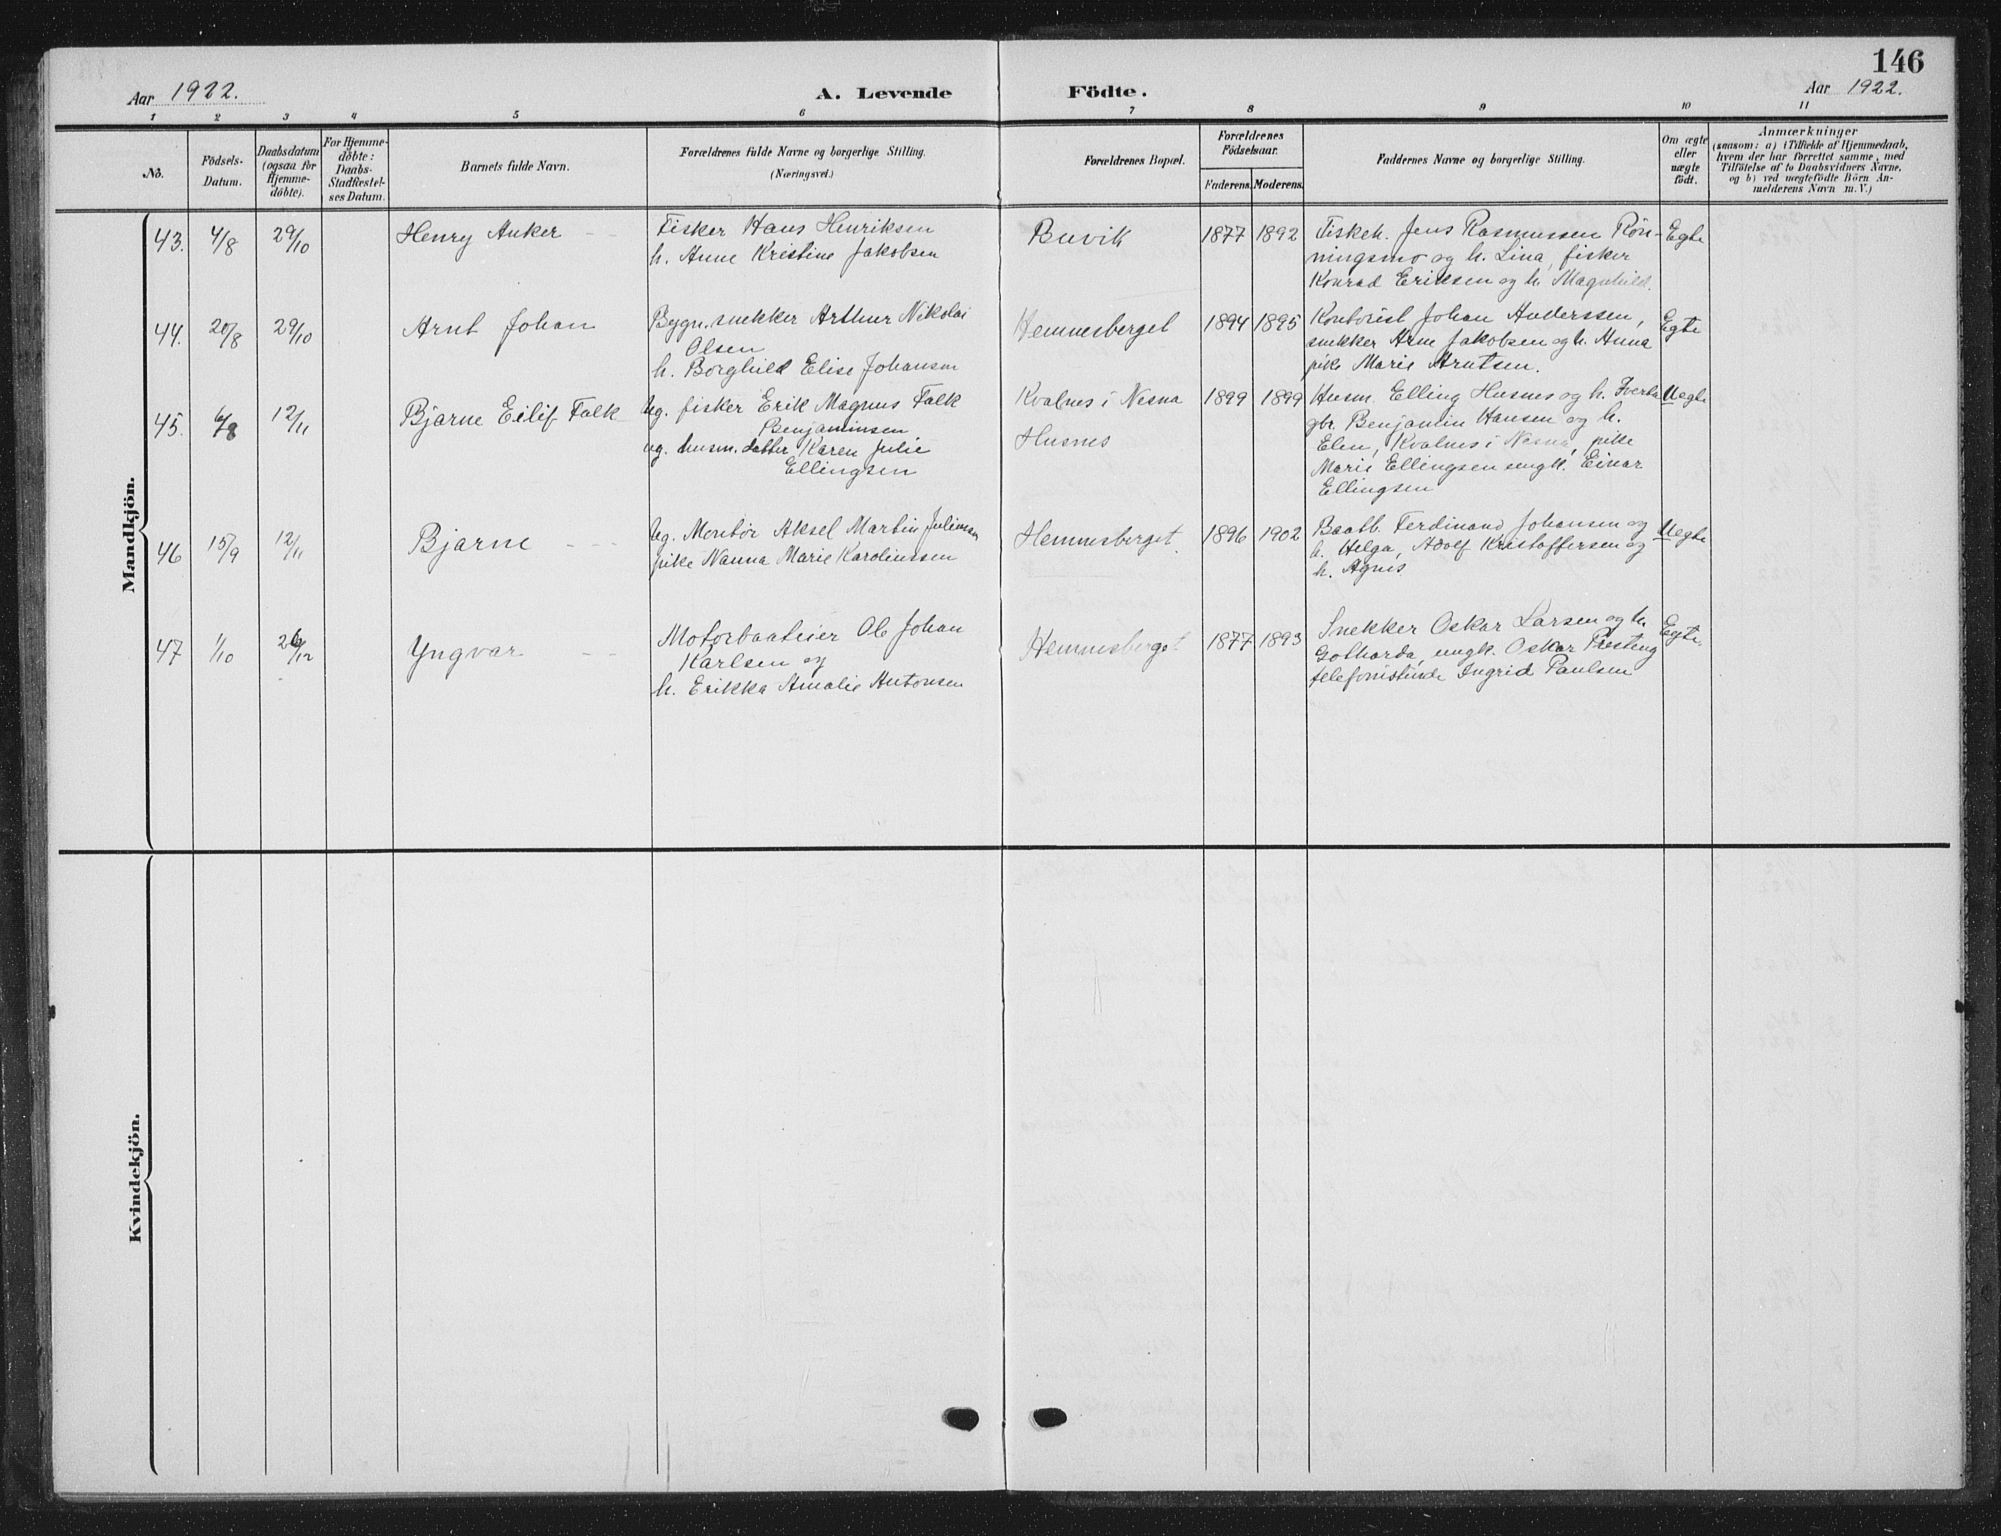 146
Aar 1922.
A. Levende Födte.
Aar 1922.
1 2 3 4 5 6 7 8 9 10 11
No.
Födsels-
Datum.
Daabsdatum
(ogsaa for
Hjemme-
döbte).
For Hjemme-
döbte:
Daabs-
Stadfæstel-
ses Datum.
Barnets fulde Navn.
Forældrenes fulde Navne og borgerlige Stilling.
(Næringsvei.)
Forældrenes Bopæl.
Forældrenes
Födselsaar.
Faderens. Moderens.
Faddernes Navne og borgerlige Stilling.
Om ægte
eller
uægte
födt.
Anmærkninger
(saasom: a) i Tilfælde af Hjemmedaab,
hvem der har forrettet samme, med
Tilföielse af to Daabsvidners Navne,
og b) ved uægtefödte Börn An-
melderens Navn m. V.)
Mandkjön.
43. 4/8 29/10 Henry Anker
Fisker Hans Henriksen
h. Anne Kristine Jakobsen
Buvik 1877 1892
Fiskeh. Jens Rasmussen Rön-
ningsmo og h. Lina, fisker
Konrad Eriksen og h. Magnhild.
Egte
44. 20/8 29/10 Arnt Johan
Bygn.snekker Arthur Nikolai
Olsen
h. Borghild Elise Johansen
Hemnesberget 1894 1895
Kontorist Johan Anderssen,
snekker Arne Jakobsen og h. Anna
pike Marie Arntsen.
Egte
45. 6/8 12/11 Bjarne Eilif Falk
Ug. fisker Erik Magnus Falk
Benjaminsen
ug. husm. datter Karen Julie
Ellingsen
Kvalnes i Nesna
Husnes
1899 1899
Husm. Elling Husnes og h.
gbr. Benjamin Hansen og h.
Elen, Kvalnes i Nesna, pike
Marie Ellingsen ungk. Einar
Ellingsen
Uegte
46 15/9 12/11 Bjarne
Ug. Montör Aksel Martin Juliussen
pike Nanna Marie Karolinssen
Hemnesberget. 1896 1902
Baatb. Ferdinand Johansen og
h. Helga, Adolf Kristoffersen og
h. Agnes.
Uegte
47 1/10 26/12 Yngvar
Motorbaateier Ole Johan
Karlsen og
h. Erikka Amalie Antonsen
Hemnesberget 1877 1893
Snekker Oskar Larsen og h.
Gotharda, ungk. Oskar Presteng
telefonistinde Ingrid Paulsen
Egte.
Kvindekjön.